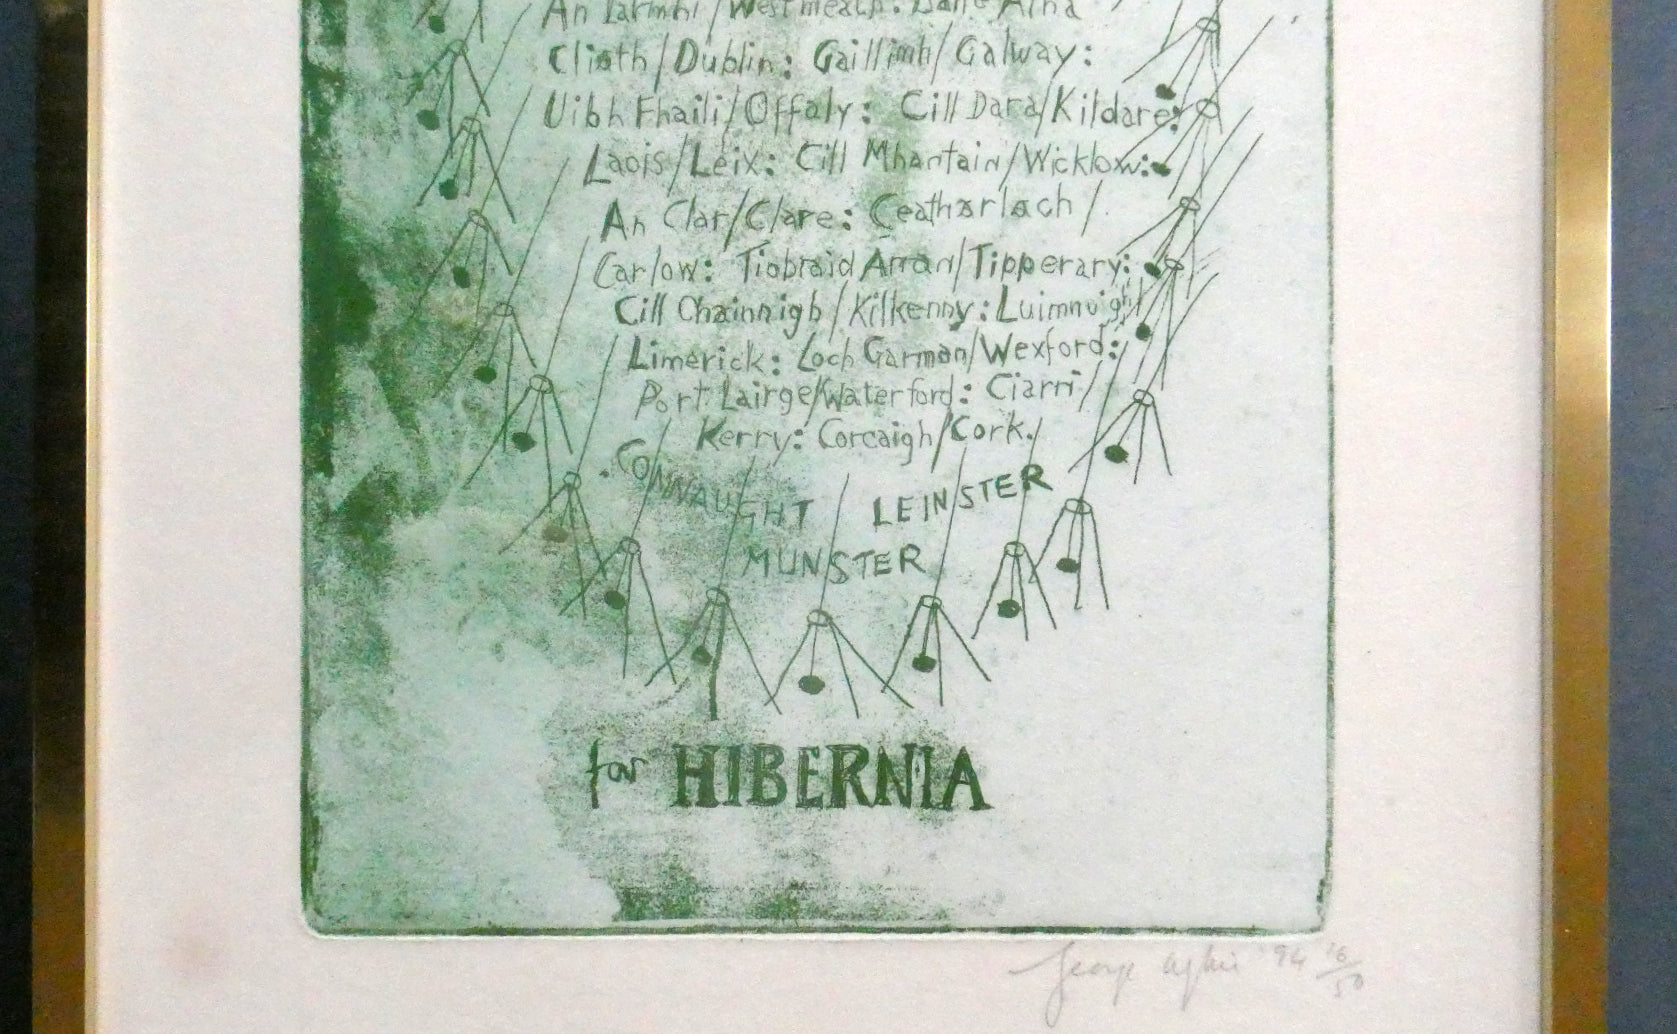 An Iarmhi/Westmeath: Baile Atha
Cliath/Dublin: Gaillimh/Galway:
Uibh Fhaili/Offaly: Cill Dara/Kildare:
Laois/Leix: Cill Mhantain/Wicklow:
An Clar/Clare: Ceatharlach/
Carlow: Tiobraid Arran/Tipperary:
Cill Chainnigh/Kilkenny: Luimnoigh/
Limerick: Loch Garman/Wexford:
Port Lairge/Waterford: Ciarri/
Kerry: Corcaigh/Cork.
CONNAUGHT LEINSTER
MUNSTER
for HIBERNIA
George '94 16/50